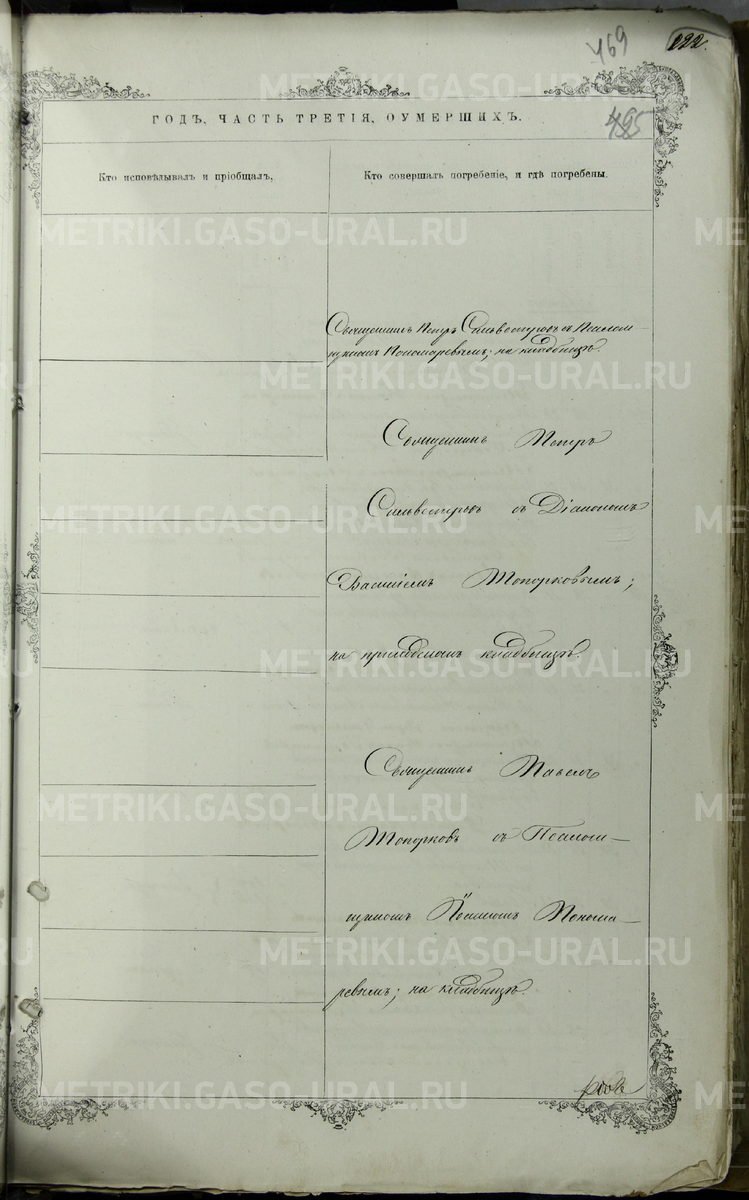 469
122.
495
ГОДЪ, ЧАСТЬ ТРЕТІЯ, ОУМЕРШИХЪ.
Кто исповѣдывалъ и пріобщалъ,
Кто совершалъ погребеніе, и гдѣ погребены.
Священникъ Петръ Сильвестровъ съ Псалом-
щикомъ Пономаревымъ; на кладбищѣ.
Священникъ Петръ
Сильвестровъ съ Діакономъ
Василіемъ Топорковымъ;
на приходскомъ кладбищѣ.
Священникъ Павелъ
Топорковъ съ Псалом-
щикомъ Пономa-
ревымъ; на кладбищѣ.
METRIKI.GASO-URAL.RU